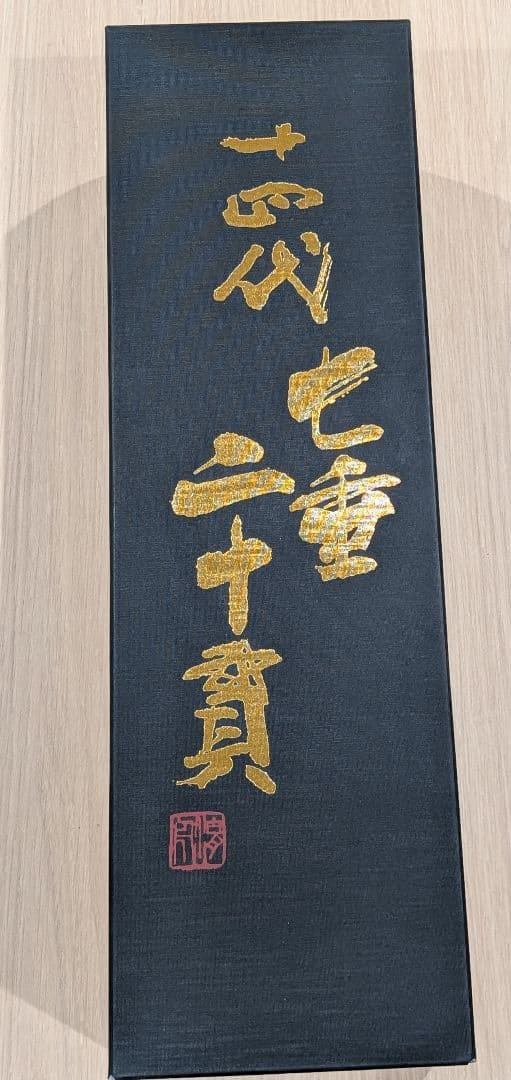 十四代
七重
二十貫